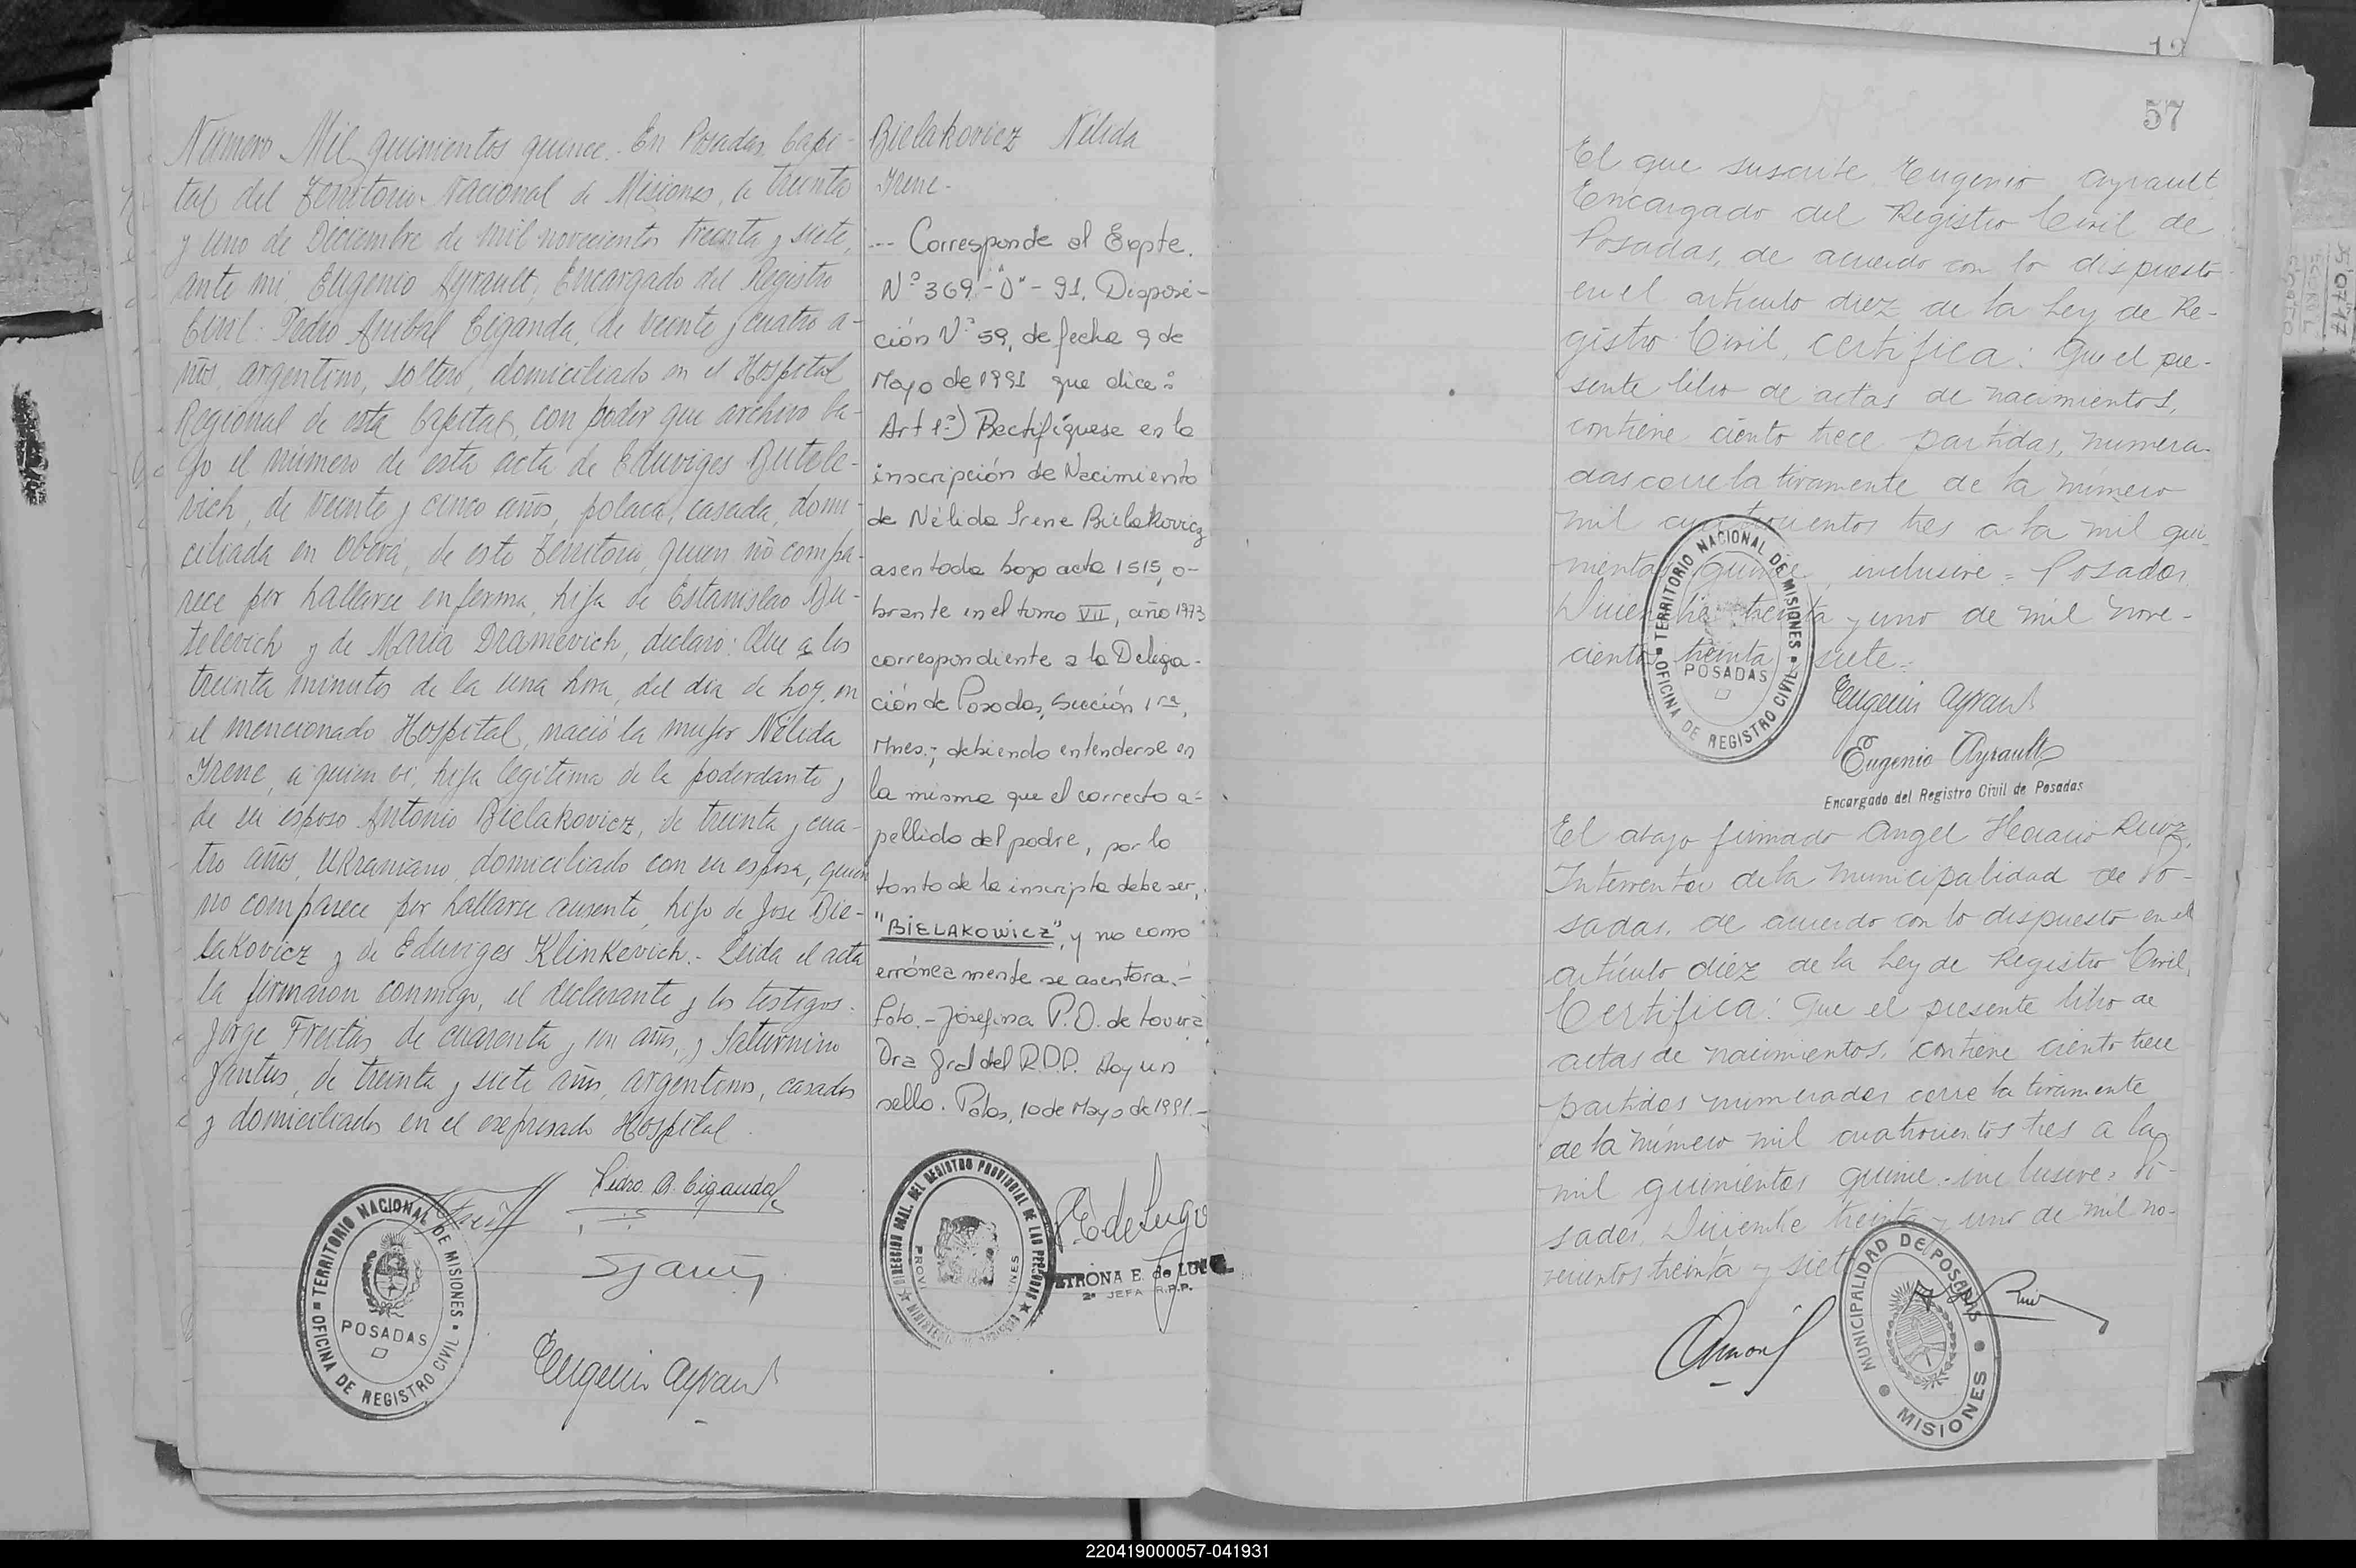 Número Mil quinientos quince.- En Posadas, Capi-
tal del Territorio Nacional de Misiones, a treinta
y uno de Diciembre de mil novecientos treinta y siete,
ante mí, Eugenio Ayrault, Encargado del Registro
Civil: Pedro Anibal Ciganda, de veinte y cuatro a-
ños, argentino, soltero, domiciliado en el Hospital
Regional de esta Capital, con poder que archivo ba-
jo el número de esta acta de Eduviges Butele-
vich, de veinte y cinco años, polaca, casada, domi-
ciliada en Oberá, de este Territorio, quien no compa-
rece por hallarse enferma, hija de Estanislao Bu-
televich y de María Dramevich, declaro: Que a los
treinta minutos de la una hora, del día de hoy, en
el mencionado Hospital, nació la mujer Nélida
Irene, a quien vi, hija legítima de la poderdante y
de su esposo Antonio Bielakovicz, de treinta y cua-
tro años, Ukraniano, domiciliado con su esposa, quien
no comparece por hallarse ausente, hijo de José Bie-
lakovicz y de Eduviges Klinkevich.- Leída el acta
la firmaron conmigo, el declarante y los testigos.
Jorge Freitas, de cuarenta y un años, y Saturnino
de treinta y siete años, argentinos, casados
y domiciliados en el expresado Hospital.
Pedro A. Ciganda
Eugenio Ayrault
TERRITORIO NACIONAL DE MISIONES
OFICINA DE REGISTRO CIVIL
POSADAS
Bielakovicz Nélida
Irene.-
--- Corresponde al Expte.
Nº 369-"D"-91, Disposi-
ción Nº 59, de fecha 9 de
Mayo de 1991 que dice:
Art 1º) Rectifíquese en la
inscripción de Nacimiento
de Nélida Irene Bielakovicz
asentada bajo acta 1515, o-
brante en el tomo VII, año 1973
correspondiente a la Delega-
ción de Posadas, Sección 1ra,
Mnes.-, debiendo entenderse en
la misma que el correcto a-
pellido del padre, por lo
tanto de la inscripta debe ser,
"BIELAKOWICZ", y no como
erróneamente se asentara.-
Fdo.- Josefina P.D. de Lovera
Dra Gral del R.P.P. Hay un
sello. Pdas, 10 de Mayo de 1991.-
DIRECCION GRAL. DEL REGISTRO PROVINCIAL DE LAS PERSONAS
E. de Lugo
TRONA E. de LUGO
2ª JEFA R.P.P.
57
El que suscribe Eugenio Ayrault
Encargado del Registro Civil de
Posadas, de acuerdo con lo dispuesto
en el artículo diez de la Ley de Re-
gistro Civil, certifica: Que el pre-
sente libro de actas de nacimientos,
contiene ciento trece partidas, numera-
das correlativamente de la número
mil cuatrocientos tres a la mil qui-
nientos quince, inclusive = Posadas
Diciembre treinta y uno de mil nove-
cientos treinta y siete.=
TERRITORIO NACIONAL DE MISIONES
OFICINA DE REGISTRO CIVIL
POSADAS
Eugenio Ayrault
Eugenio Ayrault
Encargado del Registro Civil de Posadas
El abajo firmado Angel Horacio Ruiz,
Interventor de la Municipalidad de Po-
sadas, de acuerdo con lo dispuesto en el
artículo diez de la Ley de Registro Civil,
Certifica: Que el presente libro de
actas de nacimientos, contiene ciento trece
partidas numeradas correlativamente
de la número mil cuatrocientos tres a la
mil quinientos quince.- inclusive = Po-
sadas, Diciembre treinta y uno de mil no-
vecientos treinta y siete
MUNICIPALIDAD DE POSADAS
MISIONES
220419000057-041931